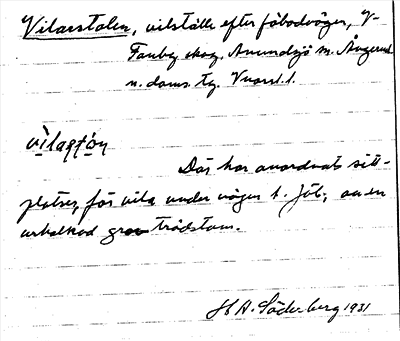 Vilarstolen, vilställe efter fäbodvägen, V-
Tannby skog, Anundsjö sn. Ångerml
n. doms. tg.
vìlaṣtó̩n
Där har anordnats sitt-
platser, för vila under vägen t. fäb; av en
urholkad gran trädstam.
H A. Söderberg 1931